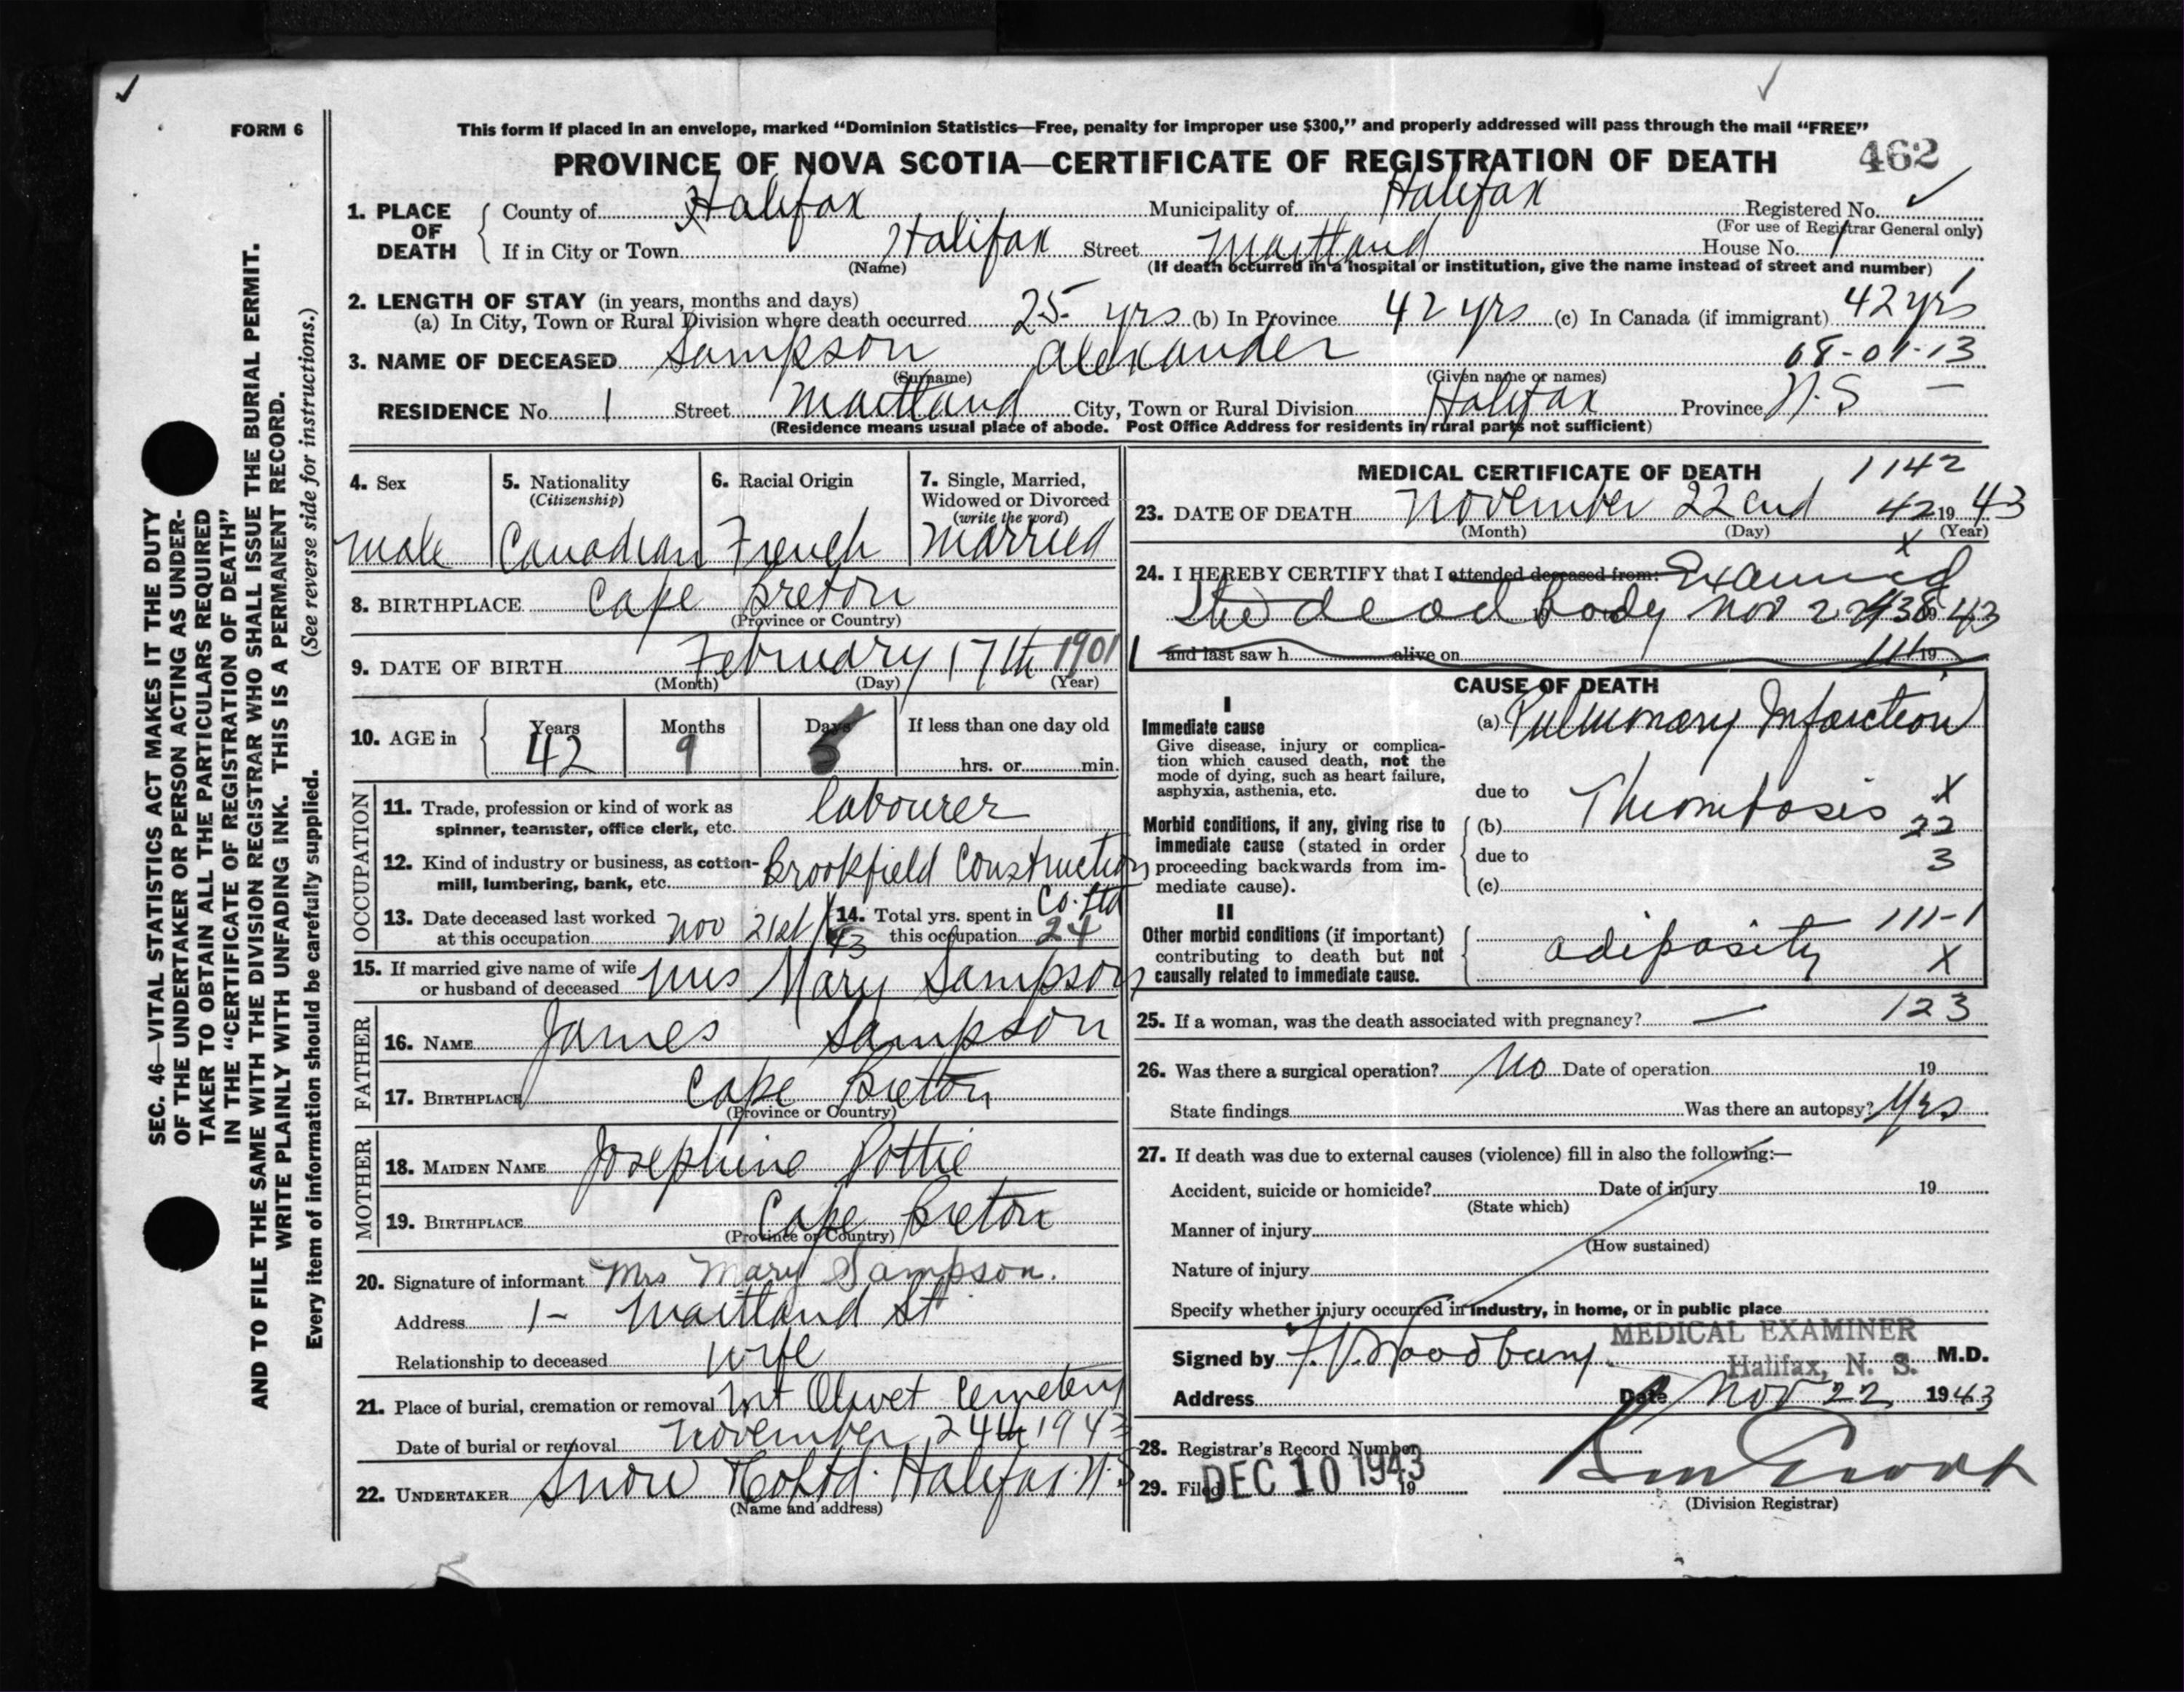 FORM 6
This form if placed in an envelope, marked “Dominion Statistics—Free, penalty for improper use $300,” and properly addressed will pass through the mail “FREE”
PROVINCE OF NOVA SCOTIA—CERTIFICATE OF REGISTRATION OF DEATH 462
SEC. 46—VITAL STATISTICS ACT MAKES IT THE DUTY
OF THE UNDERTAKER OR PERSON ACTING AS UNDER-
TAKER TO OBTAIN ALL THE PARTICULARS REQUIRED
IN THE “CERTIFICATE OF REGISTRATION OF DEATH”
AND TO FILE THE SAME WITH THE DIVISION REGISTRAR WHO SHALL ISSUE THE BURIAL PERMIT.
WRITE PLAINLY WITH UNFADING INK. THIS IS A PERMANENT RECORD.
Every item of information should be carefully supplied. (See reverse side for instructions.)
1. PLACE OF DEATH
County of Halifax Municipality of Halifax Registered No.
(For use of Registrar General only)
If in City or Town Halifax Street Maitland House No. 1
(Name) (If death occurred in a hospital or institution, give the name instead of street and number)
2. LENGTH OF STAY (in years, months and days)
(a) In City, Town or Rural Division where death occurred 25 yrs (b) In Province 42 yrs (c) In Canada (if immigrant) 42 yrs
3. NAME OF DECEASED Sampson Alexander 08-01-13
(Surname) (Given name or names)
RESIDENCE No. 1 Street Maitland City, Town or Rural Division Halifax Province N.S
(Residence means usual place of abode. Post Office Address for residents in rural parts not sufficient)
4. Sex
male
5. Nationality
(Citizenship)
Canadian
6. Racial Origin
French
7. Single, Married,
Widowed or Divorced
(write the word)
Married
8. BIRTHPLACE Cape Breton
(Province or Country)
9. DATE OF BIRTH February 17th 1901
(Month) (Day) (Year)
10. AGE in Years Months Days If less than one day old
42 9 hrs. or min.
OCCUPATION
11. Trade, profession or kind of work as
spinner, teamster, office clerk, etc. labourer
12. Kind of industry or business, as cotton-
mill, lumbering, bank, etc. Brookfield Construction
Co. Ltd
13. Date deceased last worked
at this occupation Nov 21st/43
14. Total yrs. spent in
this occupation 24
15. If married give name of wife
or husband of deceased Mrs Mary Sampson
FATHER
16. NAME James Sampson
17. BIRTHPLACE Cape Breton
(Province or Country)
MOTHER
18. MAIDEN NAME Josephine Pottie
19. BIRTHPLACE Cape Breton
(Province or Country)
20. Signature of informant Mrs Mary Sampson.
Address 1- Maitland St
Relationship to deceased wife
21. Place of burial, cremation or removal Mt Olivet Cemetery
Date of burial or removal November 24th 1943
22. UNDERTAKER Snow & Co Ltd. Halifax N.S
(Name and address)
MEDICAL CERTIFICATE OF DEATH 1142
23. DATE OF DEATH November 22end 42 19 43
(Month) (Day) (Year)
x
24. I HEREBY CERTIFY that I attended deceased from: Examined
the dead body Nov 22 43
and last saw h alive on 19
CAUSE OF DEATH
I
Immediate cause
Give disease, injury or complica-
tion which caused death, not the
mode of dying, such as heart failure,
asphyxia, asthenia, etc.
(a) Pulmonary Infarction
due to
Morbid conditions, if any, giving rise to
immediate cause (stated in order
proceeding backwards from im-
mediate cause).
(b) Thrombosis x
22
due to 3
(c)
II
Other morbid conditions (if important)
contributing to death but not
causally related to immediate cause.
111-1
adiposity X
25. If a woman, was the death associated with pregnancy? — 123
26. Was there a surgical operation? No Date of operation 19
State findings Was there an autopsy? Yes
27. If death was due to external causes (violence) fill in also the following:—
Accident, suicide or homicide? Date of injury 19
(State which)
Manner of injury
(How sustained)
Nature of injury
Specify whether injury occurred in industry, in home, or in public place
MEDICAL EXAMINER
Signed by F.V. Woodbury. Halifax, N. S. M.D.
Address Date Nov 22 1943
28. Registrar's Record Number
29. Filed DEC 10 1943 19
(Division Registrar)